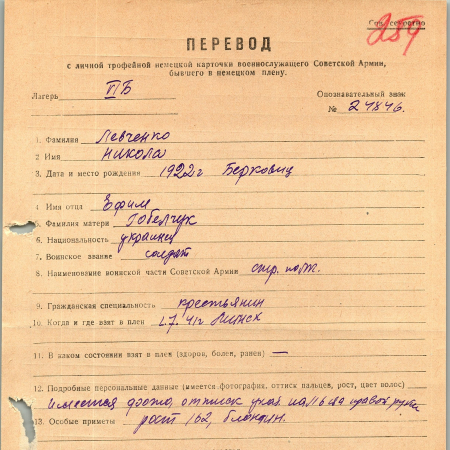 Сов. секретно
259
ПЕРЕВОД
с личной трофейной немецкой карточки военнослужащего Советской Армии,
бывшего в немецком плену.
Лагерь VI Б
Опознавательный знак
№ 24846.
1. Фамилия Левченко
2 Имя Никола
3. Дата и место рождения 1922 г Беркович
4. Имя отца Ефим
Фамилия матери Гобелчук
6. Национальность украинец
7. Воинское звание солдат
8. Наименование воинской части Советской Армии стр. полк.
9. Гражданская специальность крестьянин
10. Когда и где взят в плен 1.7.41г Минск
11. В каком состоянии взят в плен (здоров, болен, ранен) —
12. Подробные персональные данные (имеется фотография, оттиск пальцев, рост, цвет волос)
имеется фото, оттиск указ пальца правой руки
13. Особые приметы рост 162, блондин.